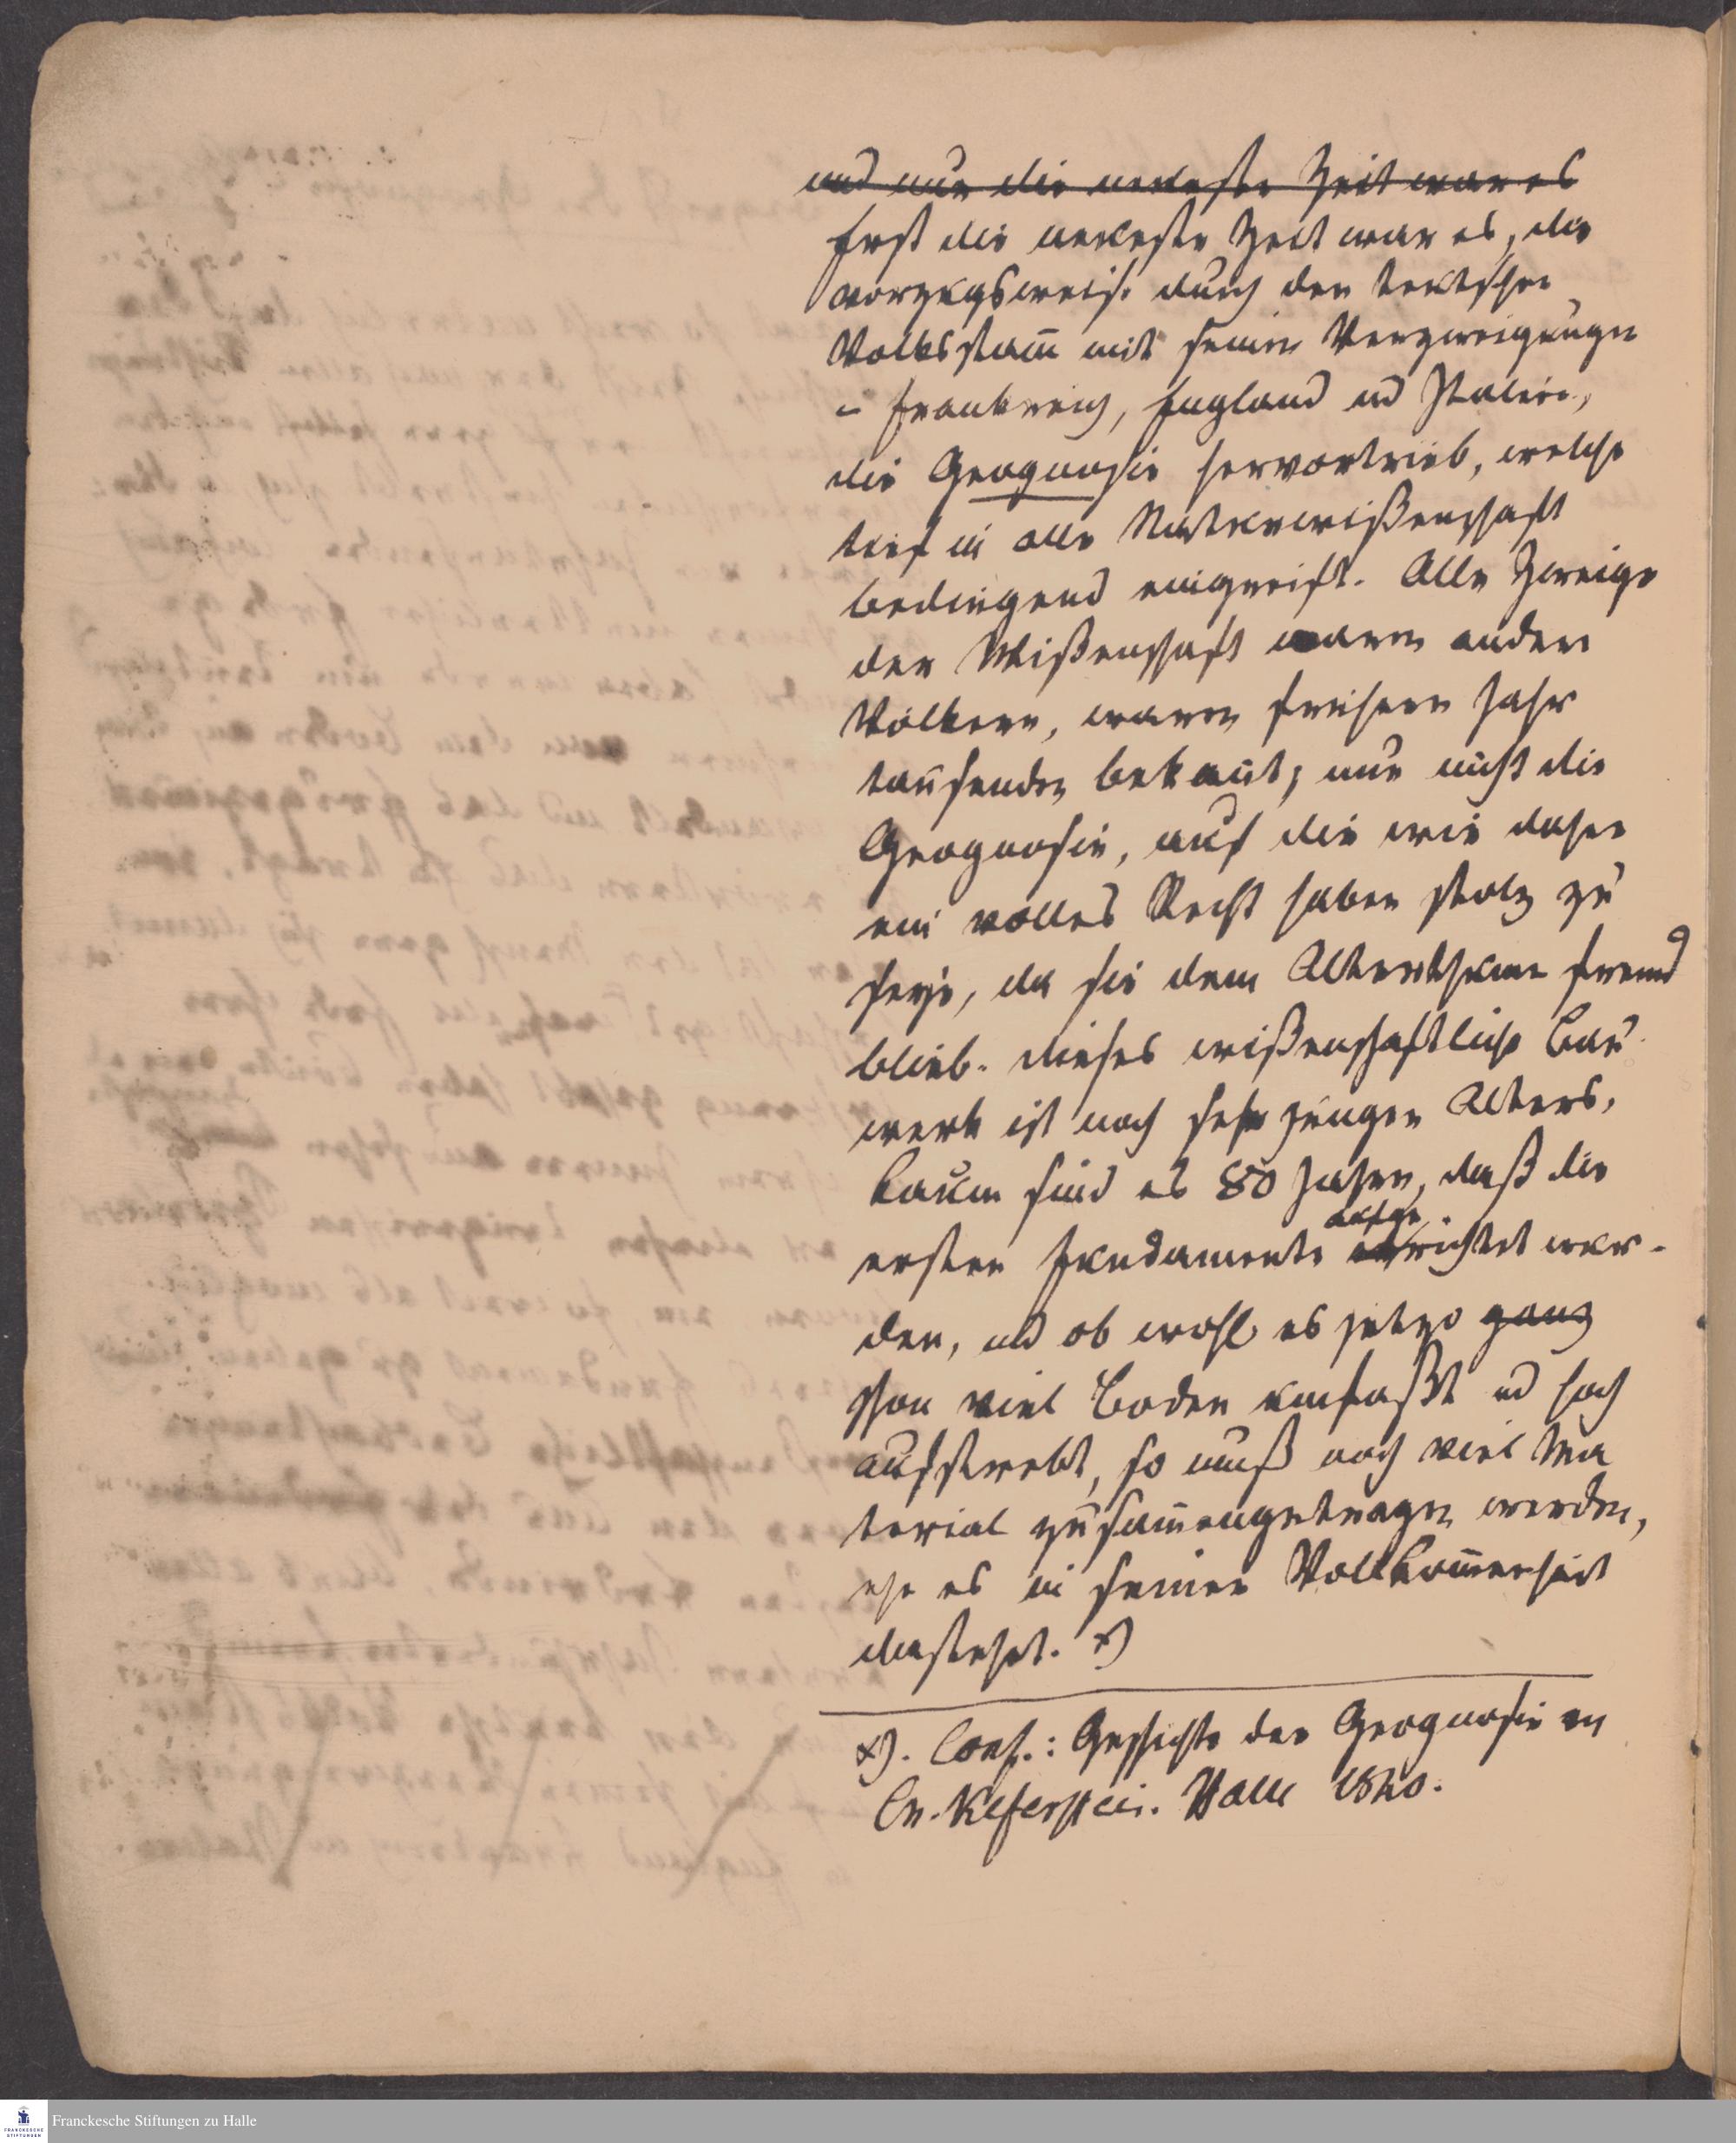 und nur die neueste Zeit war es
Erst die neueste Zeit war es, die
vorzugsweise durch den teutschen
Volksstam̅ mit seinen Verzweigungen
- Frankreich, England und Italien,
die Geognosie hervortrieb, welche
tief in alle Naturwißenschaft
bedingend eingreift. Alle Zweige
der Wißenschaft waren andern
Völkern, waren frühern Jahr
tausenden bekan̅t, nur nicht die
Geognosie, auf die wir daher
ein volles Recht haben stolz zu
seyn, da sie dem Alterthume fremd
blieb. Dieses wißenschaftliche Bau
werk ist noch sehr jungen Alters,
kaum sind es 80 Jahre, daß die
aufge
ersten Fundamente errichtet wur-
den, und ob wohl es jetzo ganz
schon viel Boden umfaßt und hoch
aufstrebt, so muß noch viel Ma
terial zusam̅engetragen werden,
ehe es in seiner Vollkom̅enheit
dastehet. x)
x). Conf.: Geschichte der Geognosie von
Ch. Keferstein. Halle 1840.
Franckesche Stiftungen zu Halle
FRANCKESCHE
STIFTUNGEN